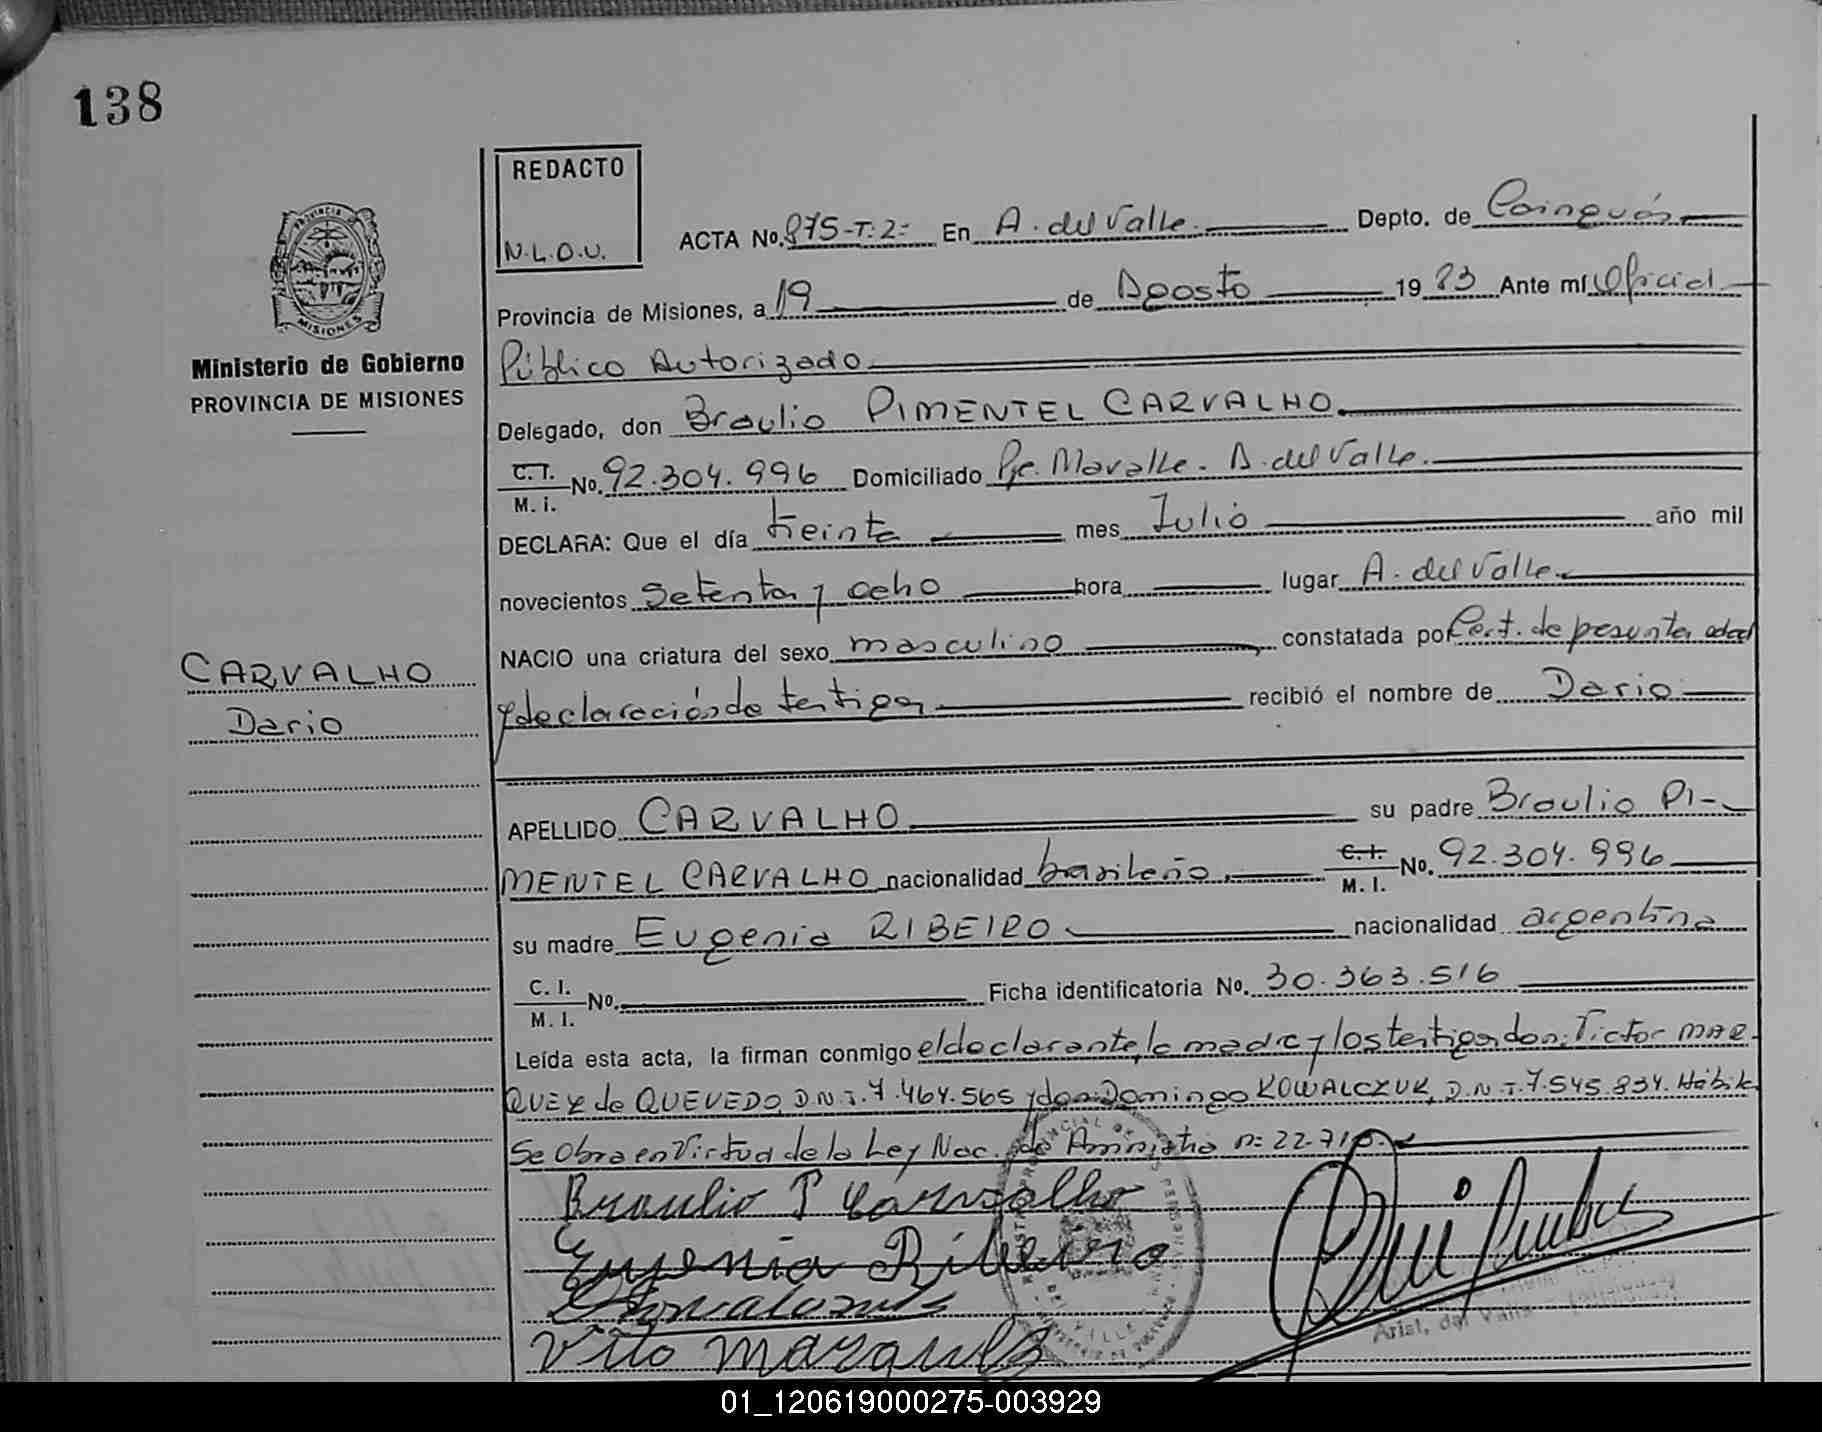 138
REDACTO
N.L.O.U.
ACTA No. 875-T:2= En A. del Valle. Depto. de Cainguás
Provincia de Misiones, a 19 de Agosto 1983 Ante mí Oficial
Público Autorizado
PROVINCIA
MISIONES
Ministerio de Gobierno
PROVINCIA DE MISIONES
Delegado, don Braulio PIMENTEL CARVALHO.
C.I. M.I. No. 92.304.996 Domiciliado Pje. Mavalle. A. del Valle.
DECLARA: Que el día treinta mes Julio año mil
novecientos setenta y ocho hora lugar A. del Valle.
NACIO una criatura del sexo masculino constatada por Cert. de presunta edad
y declaración de testigos recibió el nombre de Dario
CARVALHO
Dario
APELLIDO CARVALHO su padre Braulio PI-
MENTEL CARVALHO nacionalidad brasileño. C.I. M.I. No. 92.304.996
su madre Eugenia RIBEIRO nacionalidad argentina
C.I. M.I. No. Ficha identificatoria No. 30.363.516
Leída esta acta, la firman conmigo el declarante, la madre y los testigos don: Victor MAR-
QUEZ de QUEVEDO, D.N.I. 7.464.565 y don Domingo KOWALCZUK, D.N.I. 7.545.834. Hábiles
Se Obra en Virtud de la Ley Nac. de Amnistia n= 22.710.
Braulio P Carvalho
Eugenia Ribeiro
Vito Marquez
Arist. del Valle
01_120619000275-003929